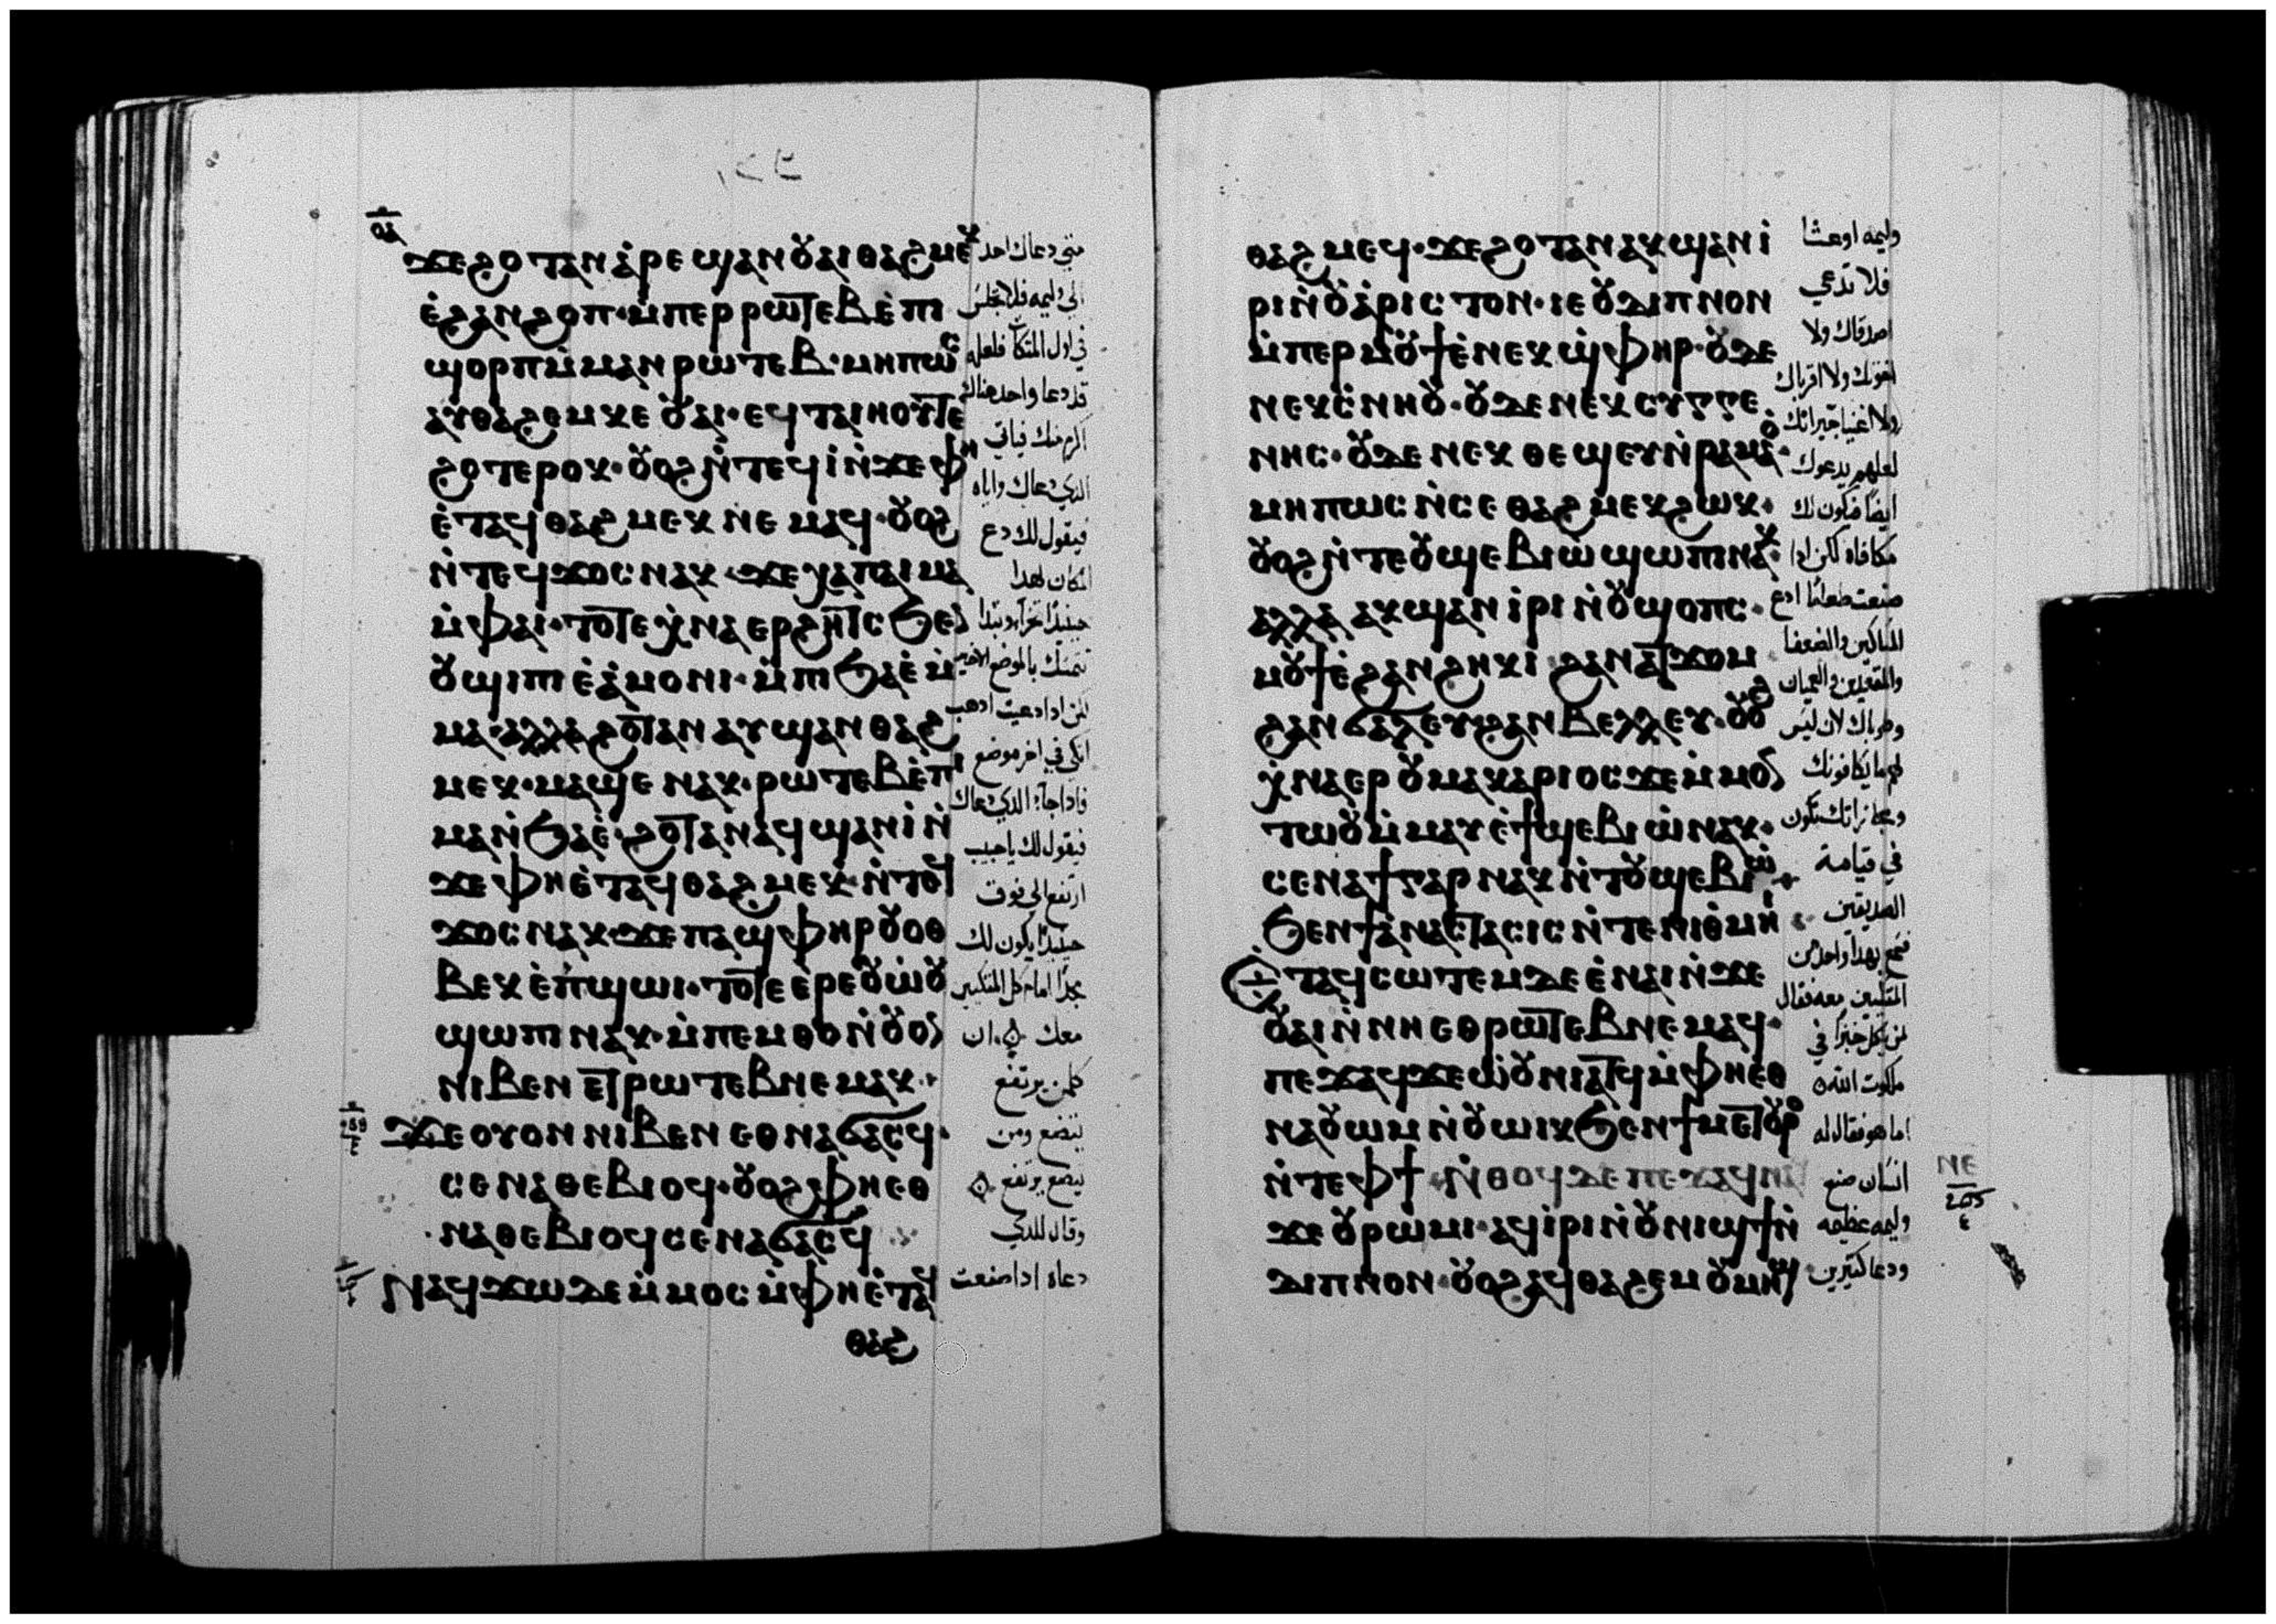 ϫⲉϩⲟⲧⲁⲛ ⲁ̀ⲣⲉϣⲁⲛⲟⲩⲁⲓ ⲑⲁϩⲙⲉⲕ
ⲉ̀ϩⲁⲛϩⲟⲡ· ⲙ̀ⲡⲉⲣⲣⲱⲧⲉⲃ ⲉ̀ⲡⲓ
ϣⲟⲣⲡ ⲙ̀ⲙⲁⲛⲣⲱⲧⲉⲃ· ⲙⲏⲡⲱⲥ
ⲁⲩⲑⲁϩⲉⲙ ⲕⲉ ⲟⲩⲁⲓ· ⲉϥⲧⲁⲓⲏⲟⲩⲧ ⲉ
ϩⲟⲧⲉⲣⲟⲕ· ⲟⲩⲟϩ ⲛ̀ⲧⲉϥⲓ̀ ⲛ̀ϫⲉⲫⲏ
ⲉ̀ⲧⲁϥⲑⲁϩⲙⲉⲕ ⲛⲉⲙⲁϥ· ⲟⲩⲟϩ
ⲛ̀ⲧⲉϥϫⲟⲥ ⲛⲁⲕ· ϫⲉⲭⲁⲡⲁⲓⲙⲁ
ⲙ̀ⲫⲁⲓ· ⲧⲟⲧⲉ ⲭ̀ⲛⲁⲉⲣϩⲏⲧⲥ ϧⲉⲛ
ⲟⲩϣⲓⲡⲓ ⲉ̀ⲁ̀ⲙⲟⲛⲓ· ⲙ̀ⲡⲓϧⲁⲉ̀ ⲙ̀
ⲙⲁ· ⲁⲗⲗⲁ ϩⲟⲧⲁⲛ ⲁⲩϣⲁⲛⲑⲁϩ
ⲙⲉⲕ· ⲙⲁϣⲉ ⲛⲁⲕ· ⲣⲱⲧⲉⲃ ⲉ̀ⲡⲓ
ⲙⲁ ⲛ̀ϧⲁⲉ̀· ϩⲟⲧⲁⲛ ⲁϥϣⲁⲛⲓ̀ ⲛ̀
ϫⲉⲫⲏ ⲉ̀ⲧⲁϥⲑⲁϩⲙⲉⲕ· ⲛ̀ⲧⲉϥ
ϫⲟⲥ ⲛⲁⲕ· ϫⲉⲡⲁϣⲫⲏⲣ ⲟⲩⲟⲑ
ⲃⲉⲕ ⲉ̀ⲡ̀ϣⲱⲓ· ⲧⲟⲧⲉ ⲉⲣⲉⲟⲩⲱ̀ⲟⲩ
ϣⲱⲡⲓ ⲛⲁⲕ· ⲙ̀ⲡⲉⲙⲑⲟ ⲛ̀ⲟⲩⲟⲛ
ⲛⲓⲃⲉⲛ ⲉⲧⲣⲱⲧⲉⲃ ⲛⲉⲙⲁⲕ·
ϫⲉ ⲟⲩⲟⲛ ⲛⲓⲃⲉⲛ ⲉⲑⲛⲁϭⲁⲥϥ·
ⲥⲉⲛⲁⲑⲉⲃⲓⲟϥ· ⲟⲩⲟϩ ⲫⲏ ⲉⲑ
ⲛⲁⲑⲉⲃⲓⲟϥ ⲥⲉⲛⲁϭⲁⲥϥ
ⲛⲁϥϫⲱ ⲇⲉ ⲙ̀ⲙⲟⲥ ⲙ̀ⲫⲏ ⲉ̀ⲧⲁϥ
ⲑⲁϩ
متى دعاك احد
الى وليمه فلا تجلس
في اول المتكآت فلعله
قد دعا واحد هناك
اكرم منك فياتي
الذي دعاك واياه
فيقول لك دع
المكان لهدا
تتمسك بالموضع الاخير
لكن ادا دعيت ادهب
اتكي في اخر موضع
فادا جاء الدي دعاك
فيقول لك يا حبيب
ارتفع الى فوق
حينيدٍ يكون لك
مجدًا امام كل المتكيين
معك ان
كلمن يرتفع
يتضع ومن
يتضع يرتفع
وقال للدي
دعاه ادا صنعت
ⲑⲁϩⲙⲉϥ· ϫⲉϩⲟⲧⲁⲛ ⲁⲕϣⲁⲛⲓ̀
ⲣⲓ ⲛ̀ⲟⲩⲁ̀ⲣⲓⲥⲧⲟⲛ· ⲓⲉ ⲟⲩⲇⲓⲡⲛⲟⲛ
ⲙ̀ⲡⲉⲣⲙⲟⲩϯ ⲉ̀ⲛⲉⲕϣⲫⲏⲣ· ⲟⲩⲇⲉ
ⲛⲉⲕⲥⲛⲏⲟⲩ· ⲟⲩⲇⲉ ⲛⲉⲕⲥⲩⲅⲅⲉ
ⲛⲏⲥ· ⲟⲩⲇⲉ ⲛⲉⲕⲑⲉϣⲉⲩ ⲛ̀ⲣⲁⲙⲁⲟ̀·
ⲙⲏⲡⲱⲥ ⲛ̀ⲥⲉⲑⲁϩⲙⲉⲕ ϩⲱⲕ·
ⲟⲩⲟϩ ⲛ̀ⲧⲉⲟⲩϣⲉⲃⲓⲱ̀ ϣⲱⲡⲓ ⲛⲁⲕ·
ⲁⲗⲗⲁ ⲁⲕϣⲁⲛⲓ̀ⲣⲓ ⲛ̀ⲟⲩϣⲟⲡⲥ·
ⲙⲟⲩϯ ⲉ̀ϩⲁⲛϩⲏⲕⲓ ϩⲁⲛⲁⲧϫⲟⲙ
ϩⲁⲛϭⲁⲗⲉⲩ ϩⲁⲛⲃⲉⲗⲗⲉⲩ· ⲟⲩⲟϩ
ⲭ̀ⲛⲁⲉⲣ ⲟⲩⲙⲁⲕⲁⲣⲓⲟⲥ ϫⲉ ⲙ̀ⲙⲟⲛ
ⲧⲱⲟⲩ ⲙ̀ⲙⲁⲩ ⲉ̀ϯϣⲉⲃⲓⲱ̀ ⲛⲁⲕ·
ⲥⲉⲛⲁϯ ⲅⲁⲣ ⲛⲁⲕ ⲛ̀ⲧⲟⲩϣⲉⲃⲓⲱ̀
ϧⲉⲛϯⲁ̀ⲛⲁⲥⲧⲁⲥⲓⲥ ⲛ̀ⲧⲉⲛⲓⲑ̀ⲙⲏⲓ
ⲉⲧⲁϥⲥⲱⲧⲉⲙ ⲇⲉ ⲉ̀ⲛⲁⲓ ⲛ̀ϫⲉ
ⲟⲩⲁⲓ ⲛ̀ⲛⲏ ⲉⲑⲣⲱⲧⲉⲃ ⲛⲉⲙⲁϥ·
ⲡⲉϫⲁϥ ϫⲉ ⲱⲟⲩⲛⲓⲁⲧϥ ⲙ̀ⲫⲏ ⲉⲑ
ⲛⲁⲟⲩⲱⲙ ⲛ̀ⲟⲩⲱⲓⲕ ϧⲉⲛϯⲙⲉⲧⲟⲩⲣⲟ
ⲛ̀ⲧⲉⲫϯ ⲛ̀ⲑⲟϥ ⲇⲉ ⲡⲉϫⲁϥ ⲛⲁϥ
ϫⲉ ⲟⲩⲣⲱⲙⲓ· ⲁϥⲓ̀ⲣⲓ ⲛ̀ⲟⲩⲛⲓϣϯ ⲛ̀
ⲇⲓⲡⲛⲟⲛ· ⲟⲩⲟϩ ⲁϥⲑⲁϩⲉⲙ ⲟⲩⲙⲏϣ
وليمه او عشا
فلا تدعي
اصدقاك ولا
اخوتك ولا اقرباك
ولا اغنيا جيرانك
لعلهم يدعوك
ايضًا فتكون لك
مكافاه لكن ادا
صنعت طعامًا ادع
المساكين والضعفا
والمقعدين والعميان
وطوباك لان ليس
لهم ما يكافونك
ومجازاتك تكون
في قيامة
الصديقين
فسمع بهدا واحد من
المتكيين معه فقال
لمن ياكل خبزًا في
ملكوت الله
اما هو فقال له
انسان صنع
وليمه عظيمه
ودعا كثيرين
ⲛⲉ